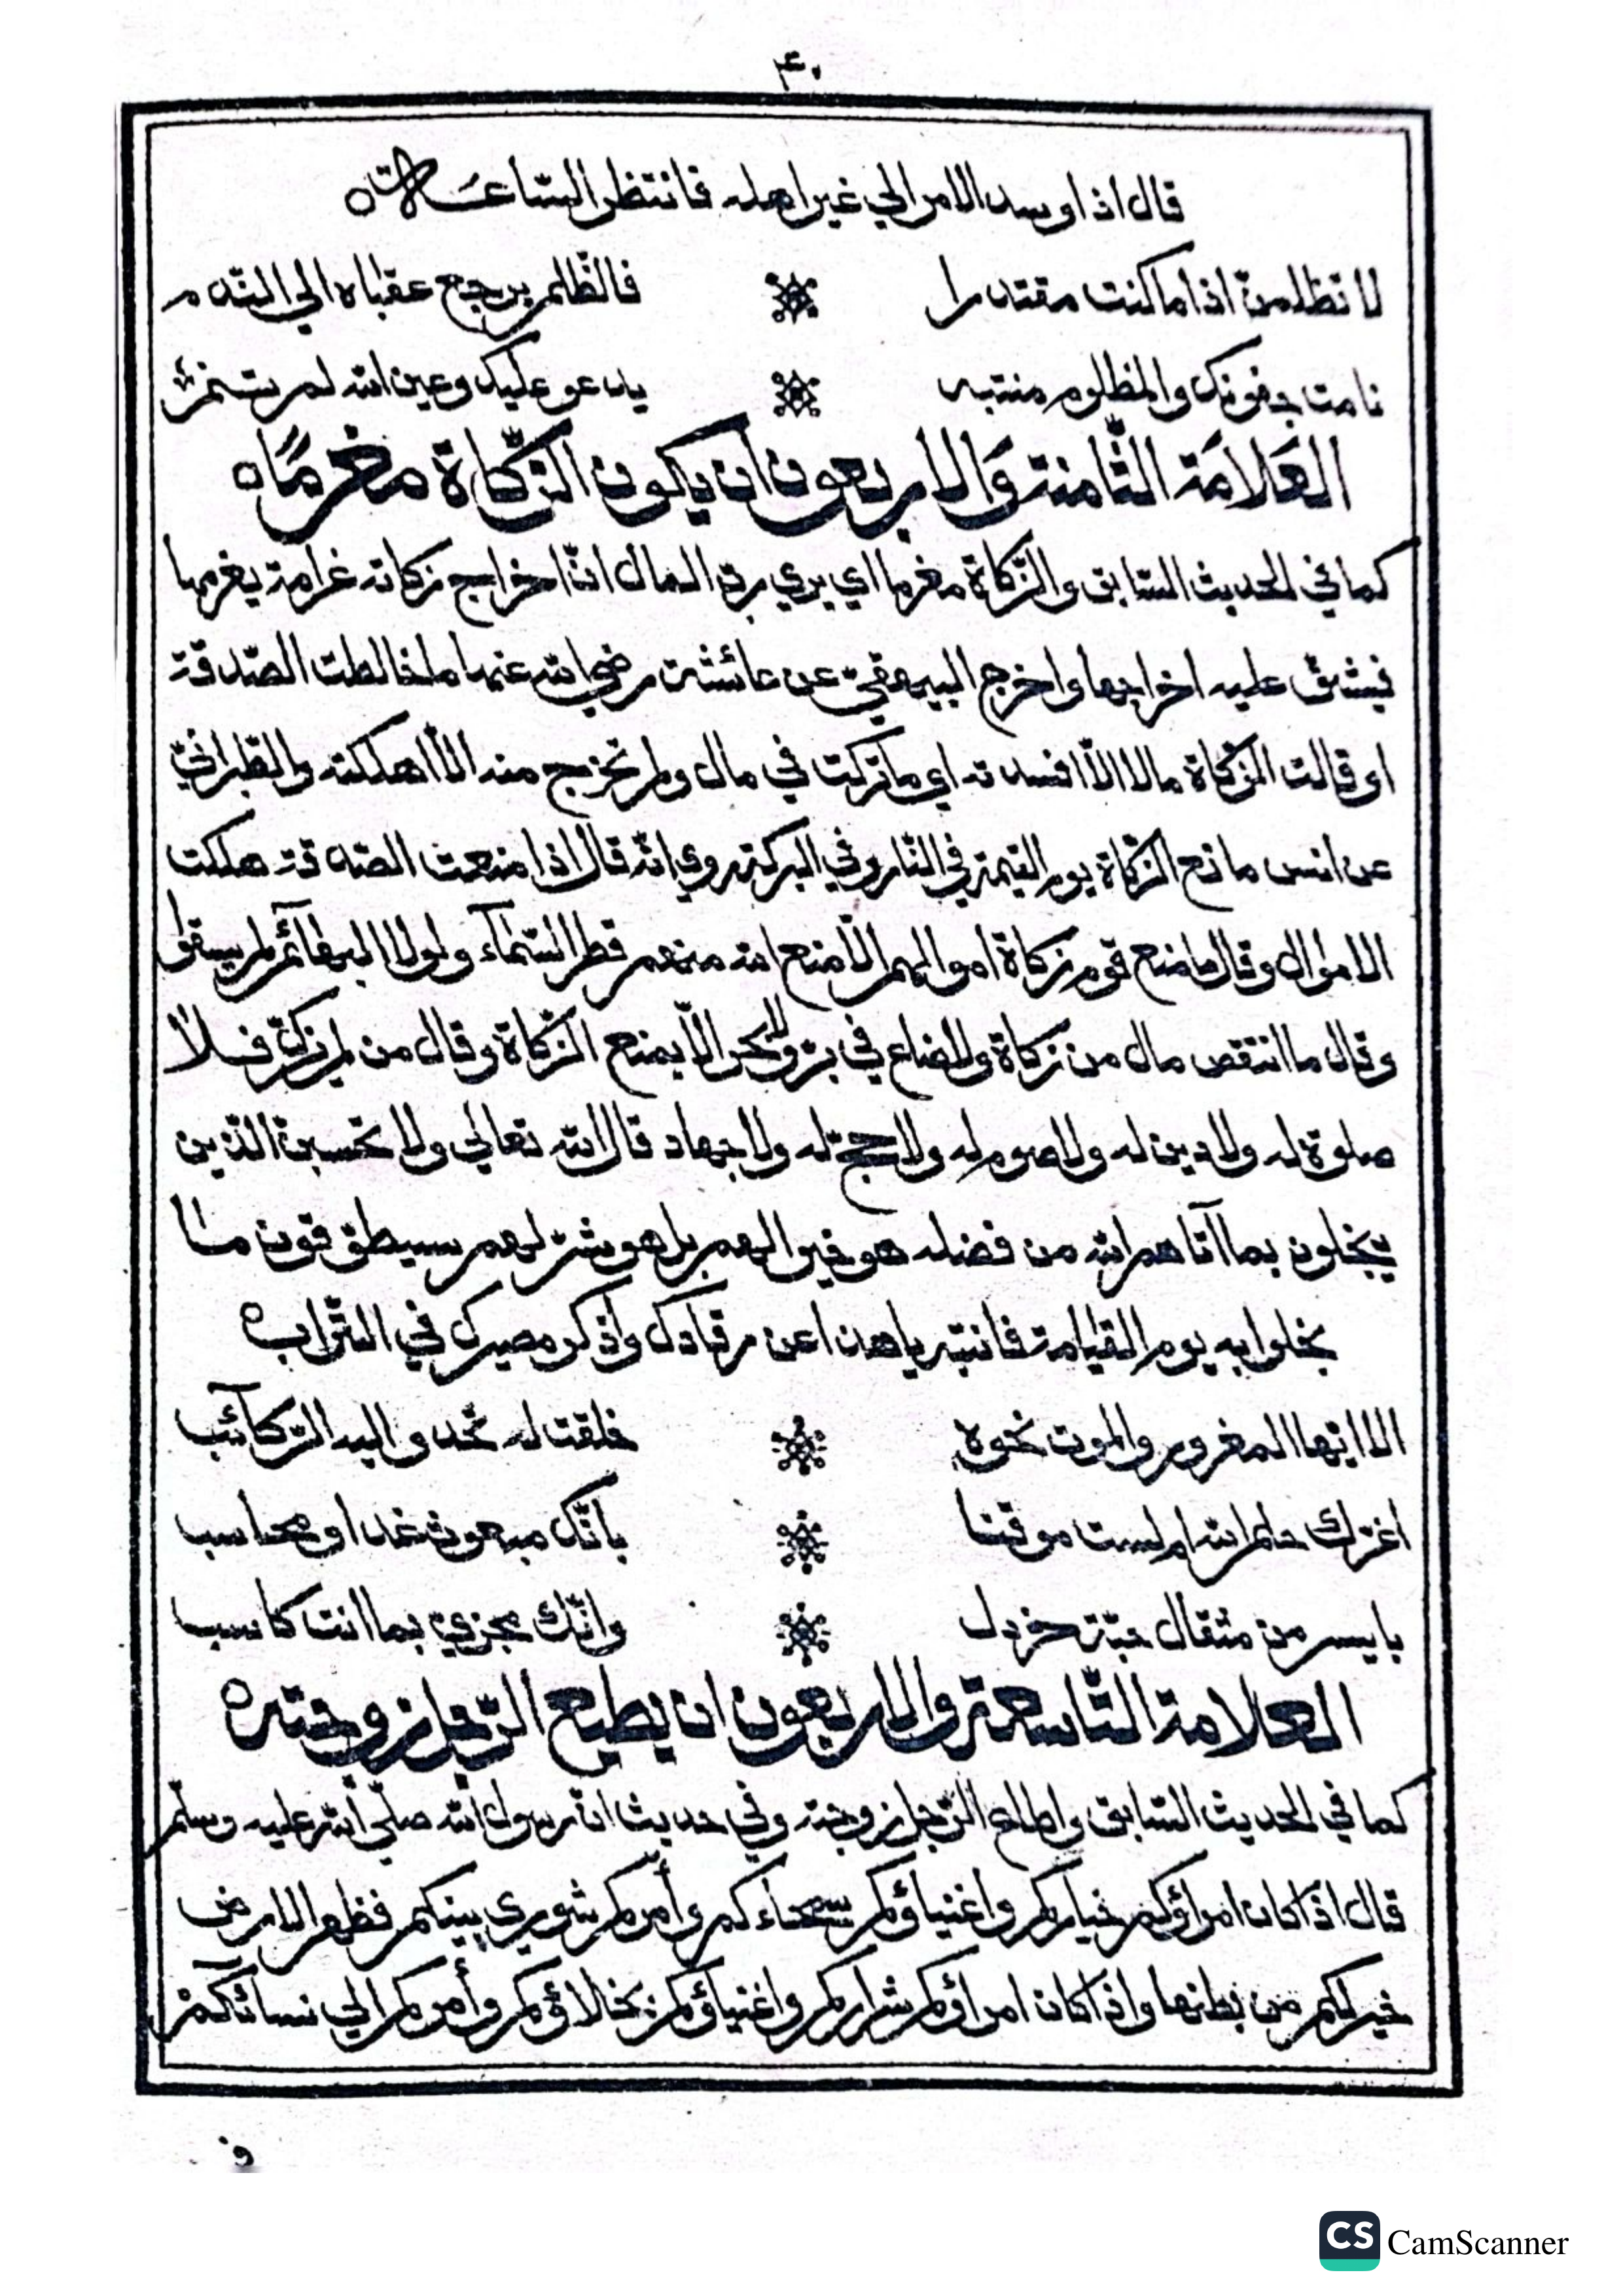 ۴۰
قال اذا وسد الامر الي غير اهله فانتظر الساعة
لا تظلمن اذا ما كنت مقتدرا فالظلم يرجع عقباه الي الندم
نامت جفونك والمظلوم منتبه يدعو عليك وعين الله لم تنم
العَلامَة الثّامنة وَالاربعون ان يكون الزّكاة مغرمًا
كما في الحديث السّابق والزّكاة مغرما اي يري ربّ المال انّ اخراج زكاته غرامة يغرمها
فيشقّ عليه اخراجها واخرج البيهقيّ عن عائشة رضي الله عنها ما خالطت الصّدقة
او قالت الزّكاة مالا الاّ افسدته اي ما تركت في مال ولم تخرج منه الاّ اهلكته والطّبرانيّ
عن انس مانع الزّكاة يوم القيمة في النّار وفي البركة روي انّه قال اذا منعت الصّدقة هلكت
الاموال وقال ما منع قوم زكاة اموالهم الاّ منع الله منهم قطر السّمآء ولولا البهآئم لم يسقوا
وقال ما انتقص مال من زكاة ولا ضاع في برّ ولا بحر الاّ بمنع الزّكاة وقال من لم يزكّ فلا
صلوة له ولا دين له ولا صوم له ولا حجّ له ولا جهاد قال الله تعالي ولا تحسبنّ الّذين
يبخلون بما آتاهم الله من فضله هو خير الهم بل هو شرّ لهم سيطوّقون ما
بخلوا به يوم القيامة فانتبه يا هذا عن رقادك واذكر مصيرك في التّراب
الا ايّها المغرور والموت نحوه خلقت له تحدو اليه الرّكآئب
اغرّك حلم الله ام لست موقنا بانّك مبعوث غدا ومحاسب
بايسر من مثقال حبّة خردل وانّك مجزيّ بما انت كاسب
العلامة التّاسعة والاربعون ان يطيع الرّجل زوجته
كما في الحديث السّابق واطاع الرّجل زوجته وفي حديث انّ رسول الله صلّي الله عليه وسلّم
قال اذا كان امراؤكم خياركم واغنياؤكم سمحاءكم وأمركم شوري بينكم فظهر الارض
خير لكم من بطنها واذا كان امراؤكم شراركم واغنياؤكم بخلاؤكم وأمركم الي نسائكم
ف
CS CamScanner